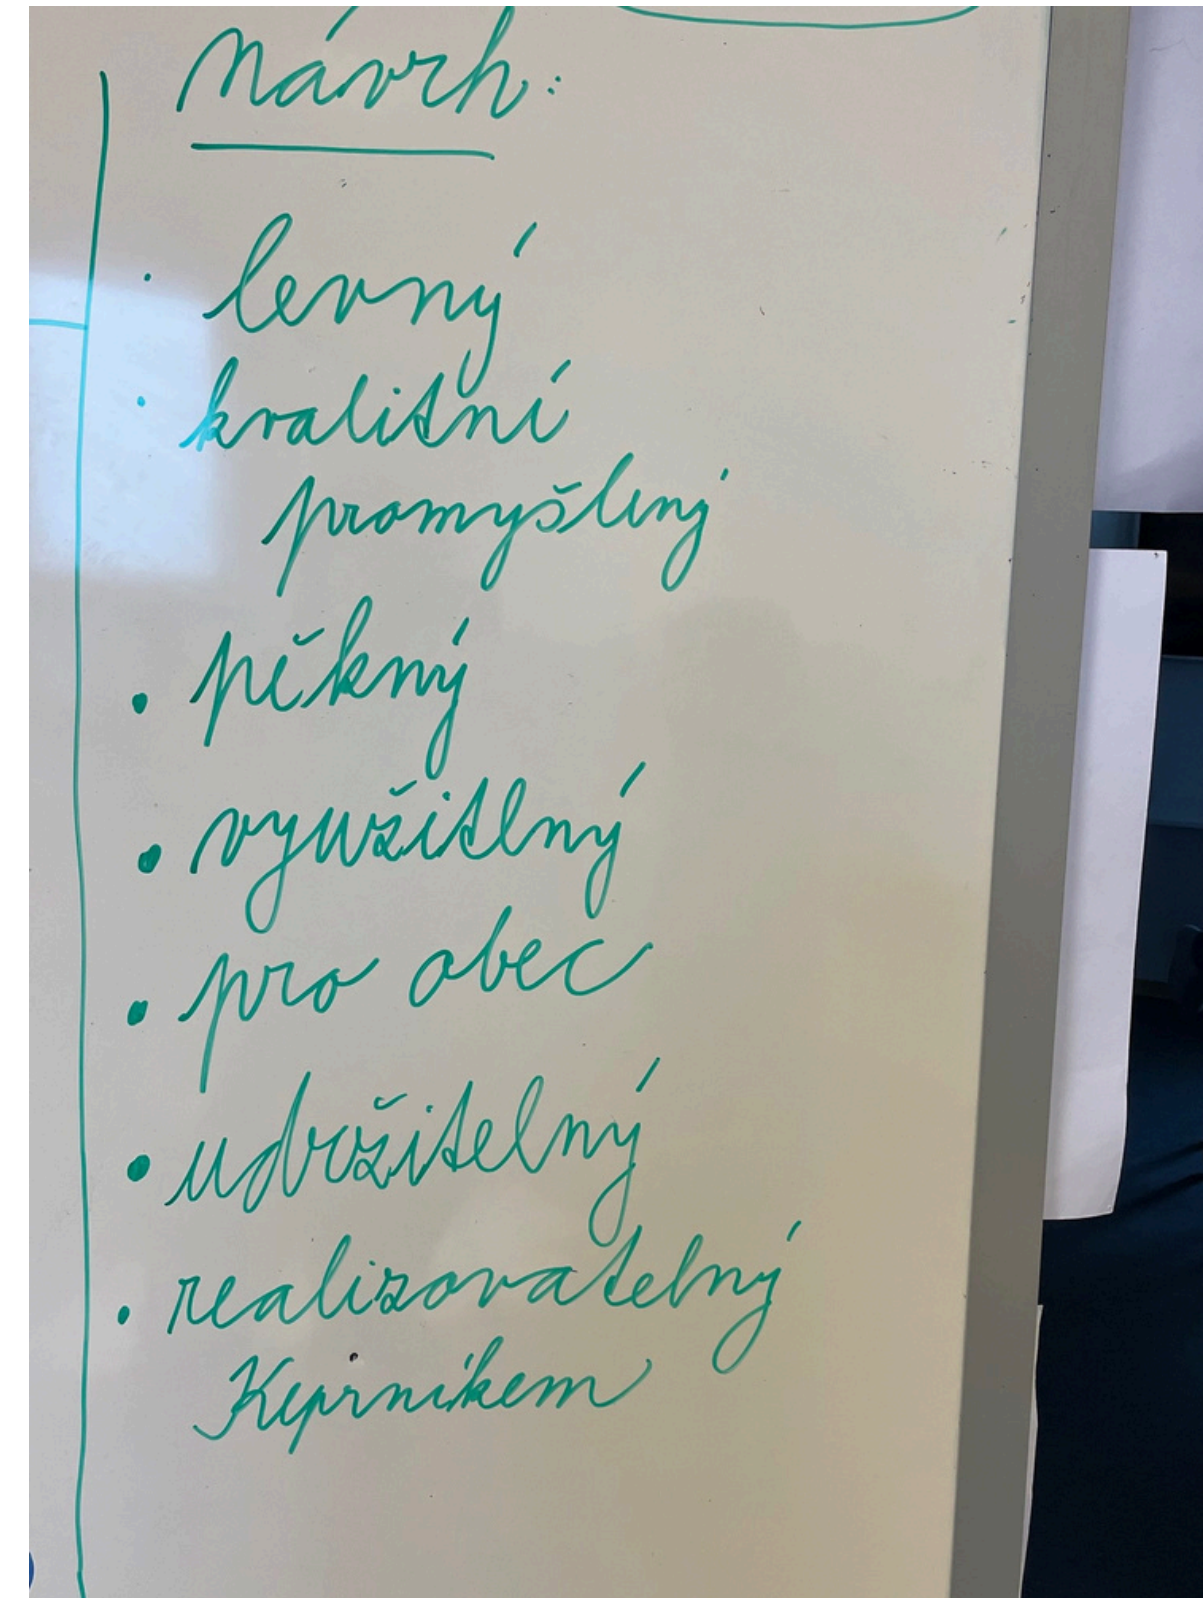 Návrh:
• levný
• kvalitní
promyšlený
• pěkný
• využitelný
• pro obec
• udržitelný
• realizovatelný
Keprníkem